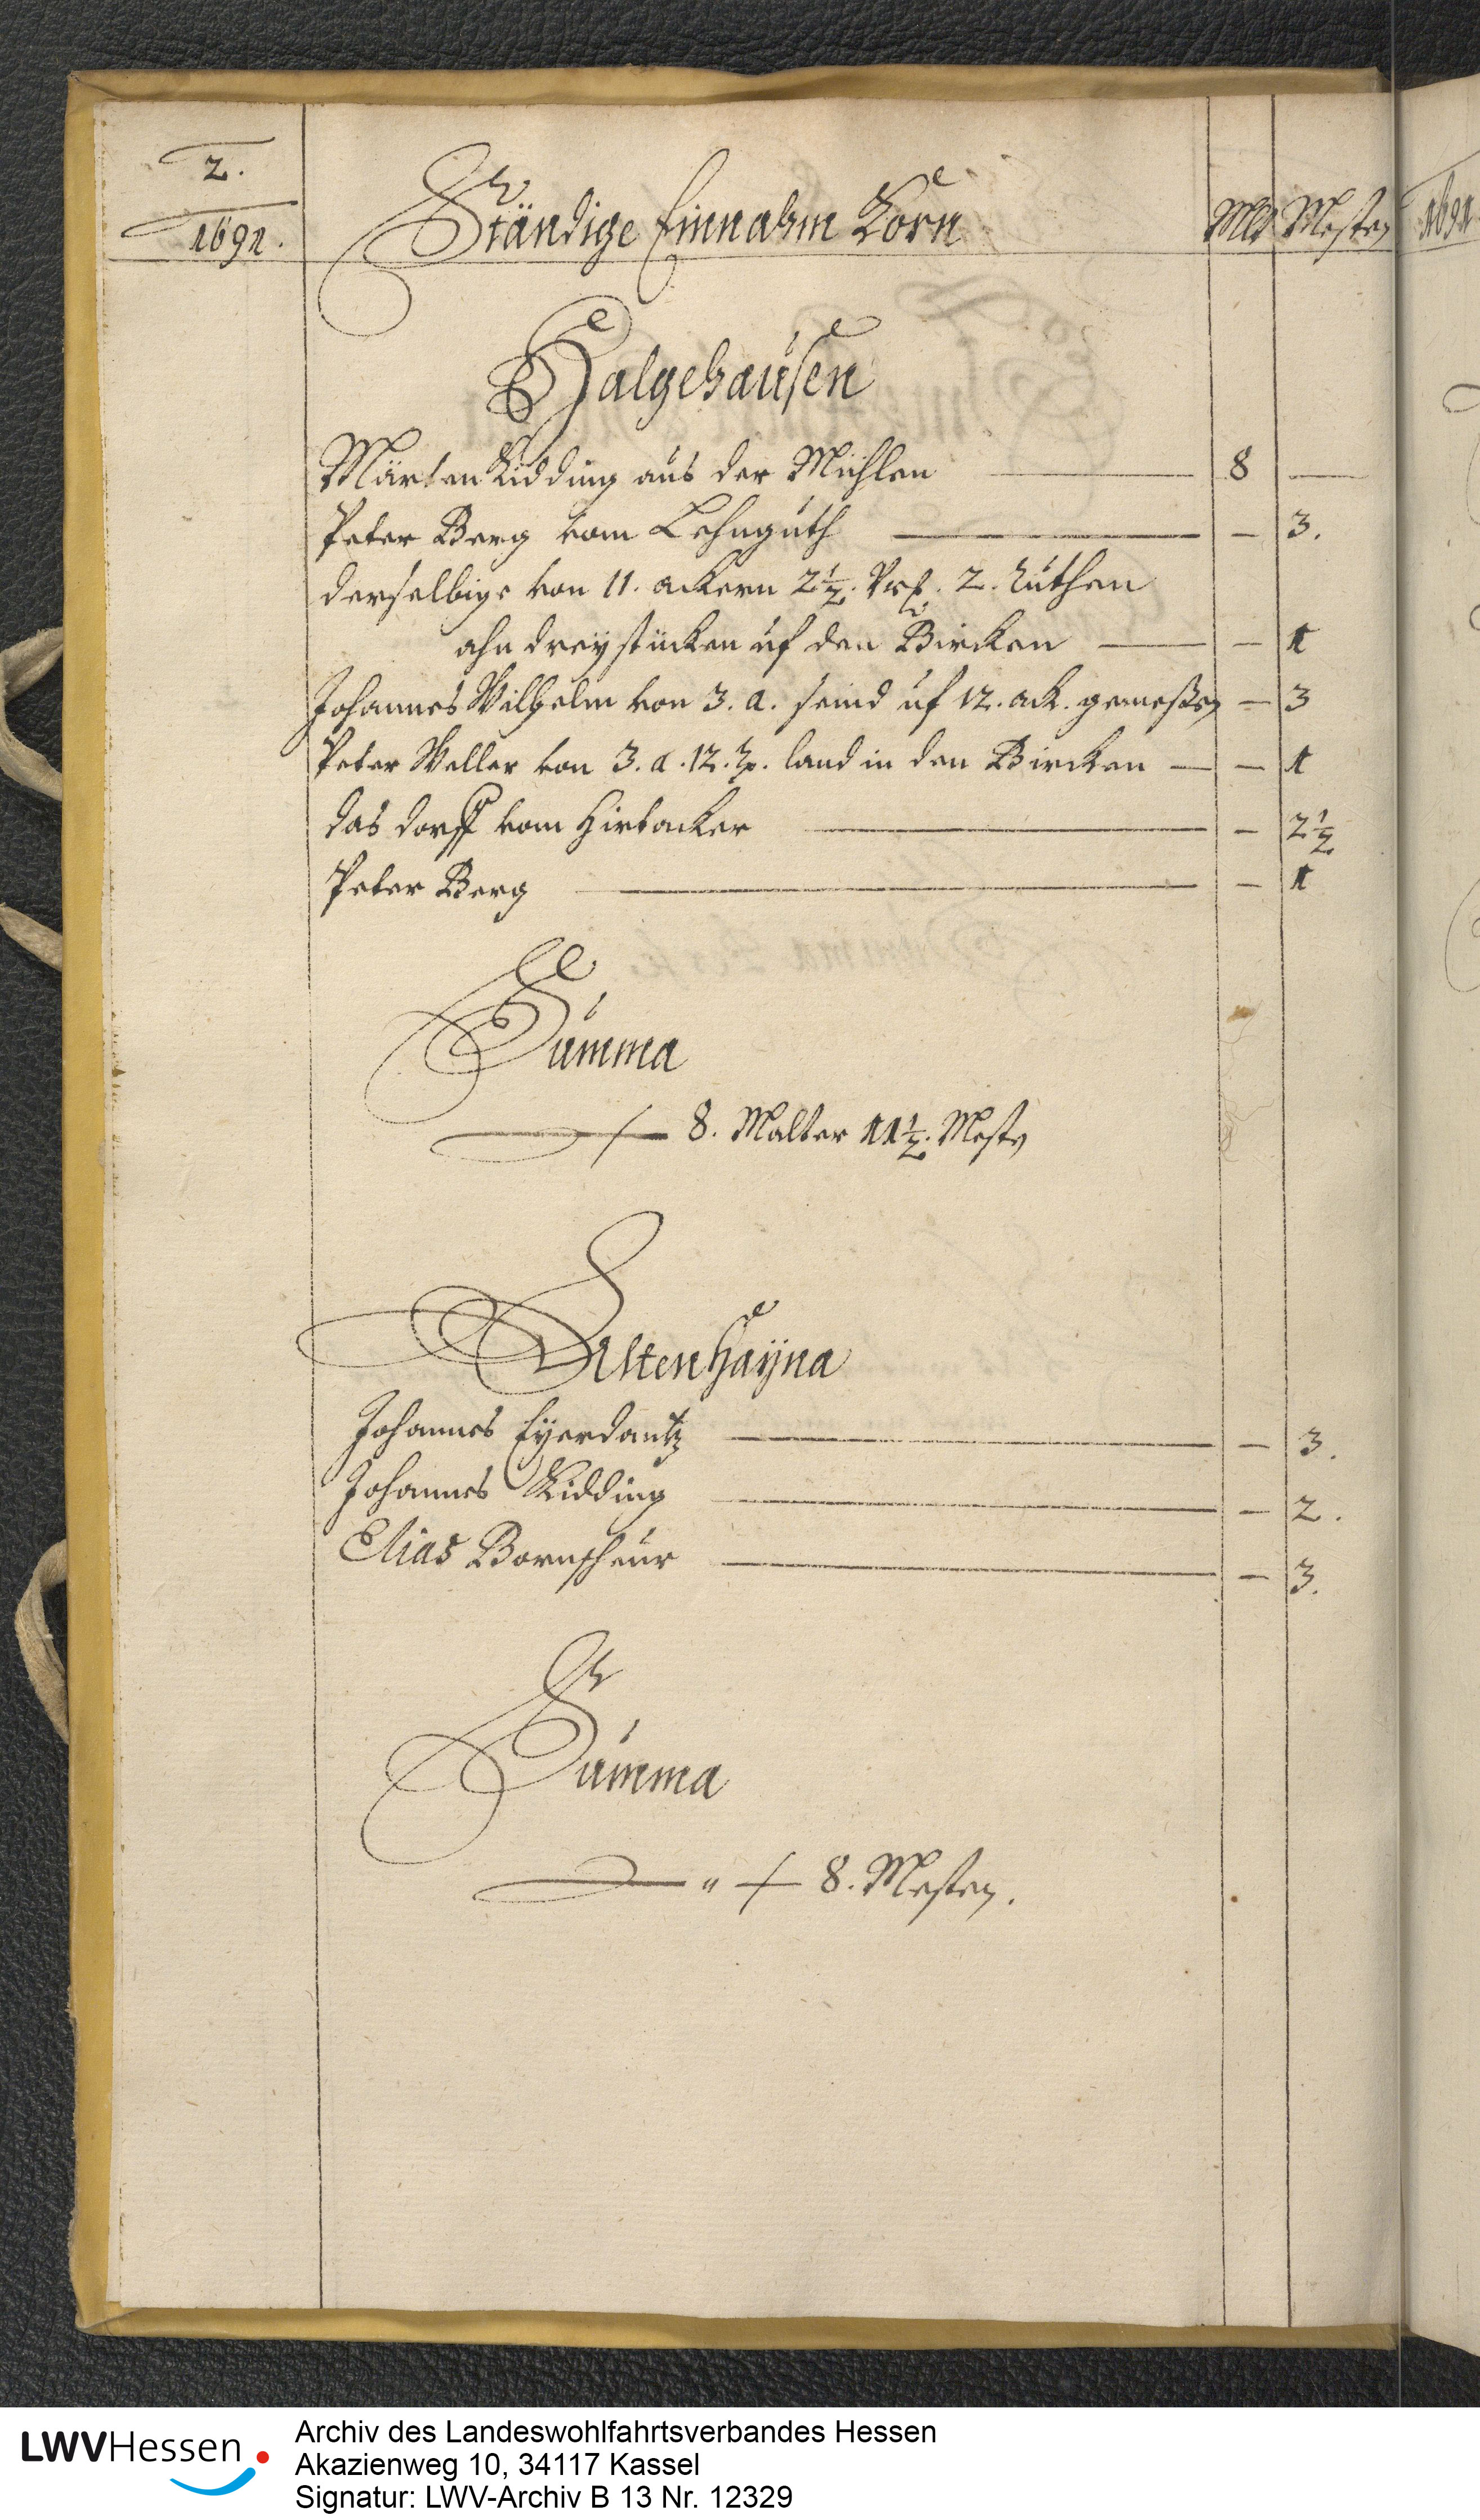 2.
1691.
Ständige Einnahm Korn Mltr Mesten
Halgehausen
Märten Ridding aus der Mühlen 8 —
Peter Berg vom Lehnguth — 3.
derselbige von 11. ackern 2½. 2. ruthen
ahn drey stücken uf den Bircken — 1
Johannes Wilhelm von 3. a. seind uf 12. ack. gemeßen — 3
Peter Weller von 3. a. 12. land in den Bircken — 1
das dorff vom Hirtacker — 2½
Peter Berg — 1
Summa
8. Malter 11½. Meste
Altenhayna
Johannes Eyerdantz — 3.
Johannes Ridding — 2.
Elias Bornscheur — 3.
Summa
" 8. Mesten.
1691
LWVHessen
Archiv des Landeswohlfahrtsverbandes Hessen
Akazienweg 10, 34117 Kassel
Signatur: LWV-Archiv B 13 Nr. 12329